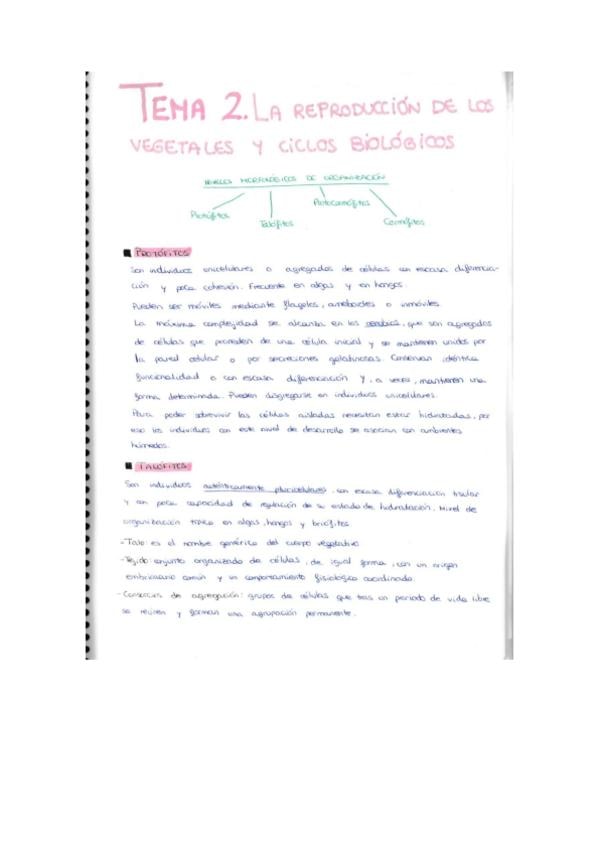 TEMA 2. LA REPRODUCCIÓN DE LOS
VEGETALES Y CICLOS BIOLÓGICOS
NIVELES MORFOLÓGICOS DE ORGANIZACIÓN
Protófitos Talófitos Protocormófitos Cormófitos
PROTÓFITOS
Son individuos unicelulares o agregados de células con escasa diferencia-
ción y poca cohesión. Frecuente en algas y en hongos.
Pueden ser móviles mediante flagelos, ameboides o inmóviles.
La máxima complejidad se alcanza en los cenobios, que son agregados
de células que proceden de una célula inicial y se mantienen unidas por
la pared celular o por secreciones gelatinosas. Conservan idéntica
funcionalidad o con escasa diferenciación y, a veces, mantienen una
forma determinada. Pueden disgregarse en individuos unicelulares.
Para poder sobrevivir las células aisladas necesitan estar hidratadas, por
eso los individuos con este nivel de desarrollo se asocian con ambientes
húmedos.
TALÓFITOS
Son individuos auténticamente pluricelulares, con escasa diferenciación tisular
y con poca capacidad de regulación de su estado de hidratación. Nivel de
organización típico en algas, hongos y briófitos.
-Talo: es el nombre genérico del cuerpo vegetativo
-Tejido: conjunto organizado de células, de igual forma, con un origen
embrionario común y un comportamiento fisiológico coordinado.
-Consorcios de agregación: grupos de células que tras un periodo de vida libre
se reúnen y forman una agrupación permanente.